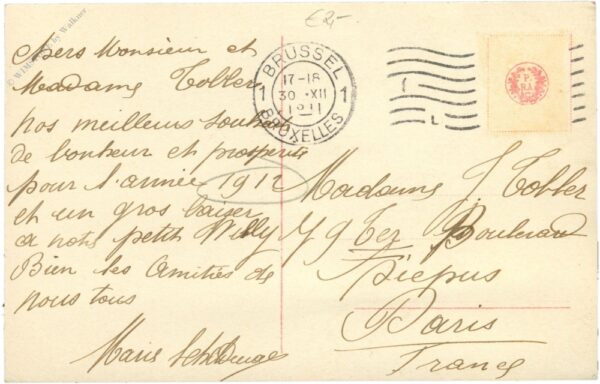 €2,-
© W1 by Walkner
BRUSSEL
1 17-18 1
30 XII
1911
BRUXELLES
P.
RA
chers Monsieur et
Madame Tobler
nos meilleurs souhaits
de bonheur et prosperite
pour l'année 1912
et un gros baiser
a notre petit Willy
Bien les Amitiés de
nous tous
Marie
Madame J Tobler
79 Ter Boulevard
Picpus
Paris
France